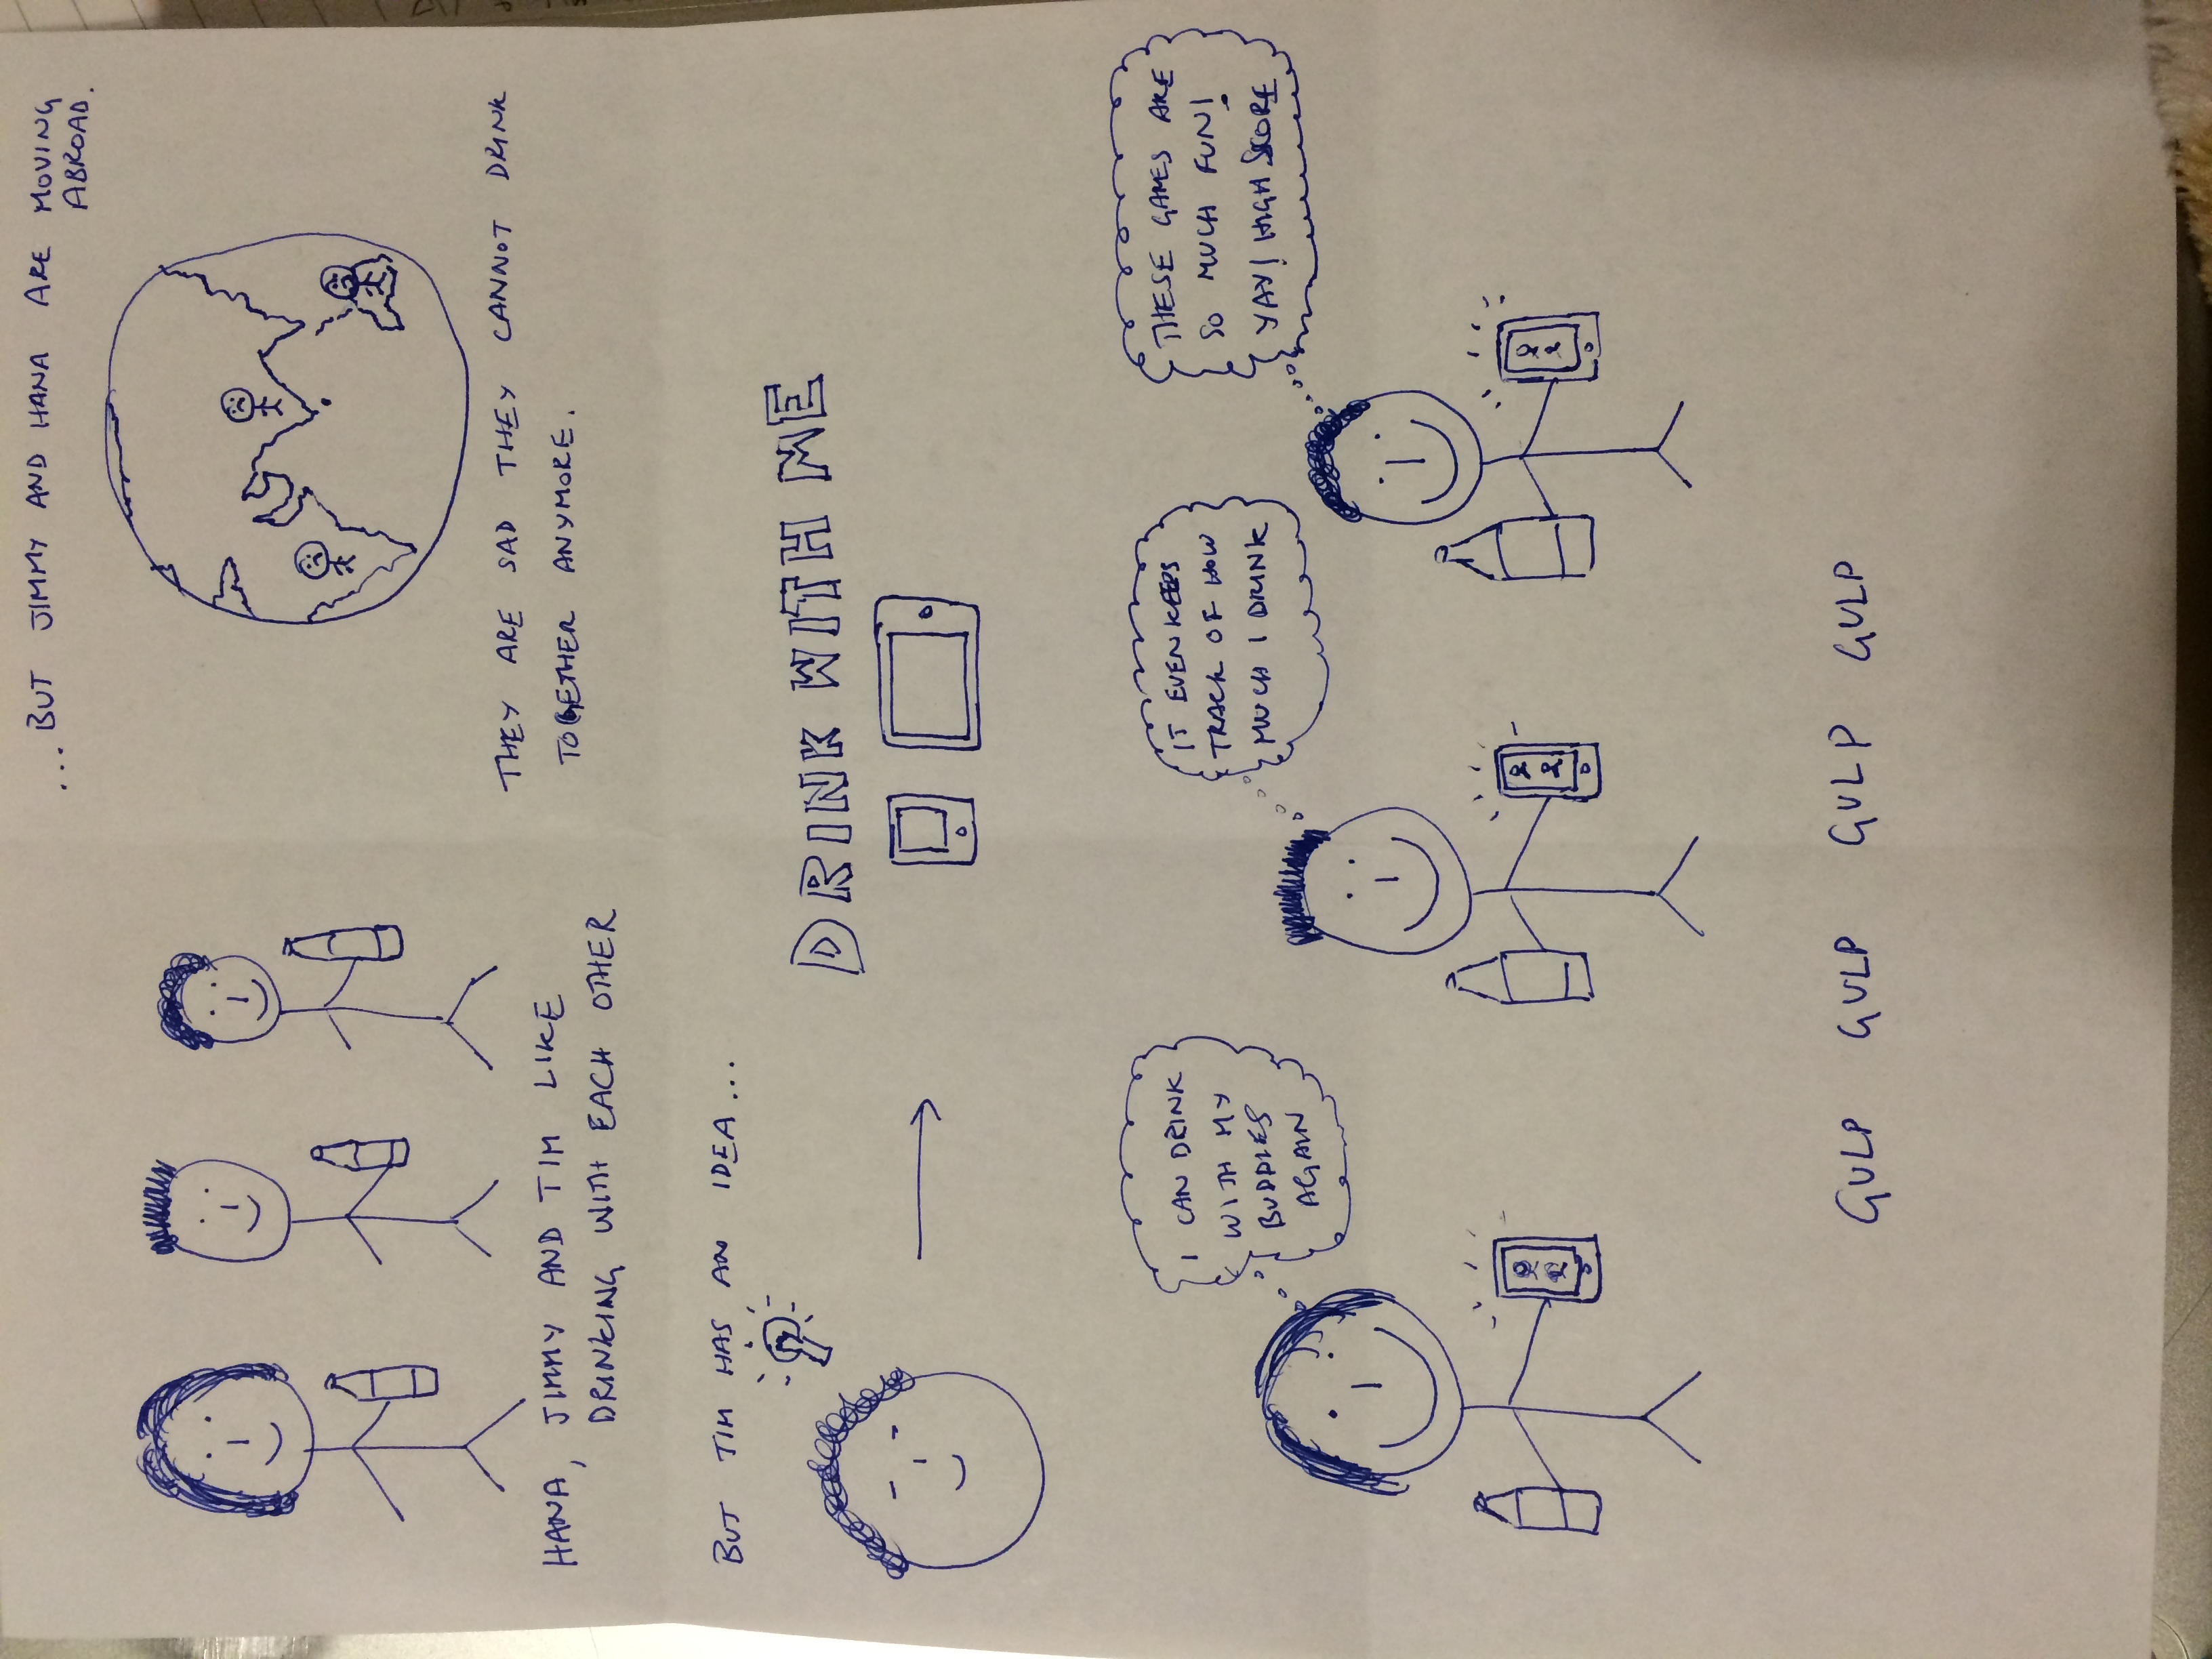 HANA, JIMMY AND TIM LIKE
DRINKING WITH EACH OTHER
...BUT JIMMY AND HANA ARE MOVING
ABROAD.
THEY ARE SAD THEY CANNOT DRINK
TOGETHER ANYMORE.
BUT TIM HAS AN IDEA...
DRINK WITH ME
I CAN DRINK
WITH MY
BUDDIES
AGAIN
IT EVEN KEEPS
TRACK OF HOW
MUCH I DRINK
THESE GAMES ARE
SO MUCH FUN!
YAY! HIGH SCORE
GULP GULP GULP GULP